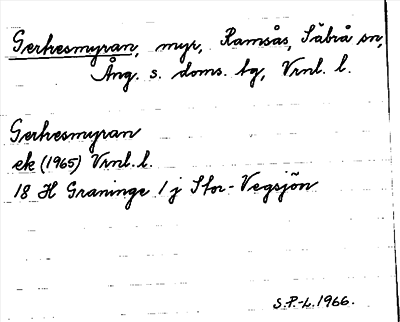 Gerhesmyran, myr, Ramsås, Säbrå sn,
Ång. s. doms. tg, Vrnl. l.
Gerhesmyran
ek (1965) Vrnl. l.
18 H Graninge 1 j Stor-Vegsjön
S.P-L. 1966.